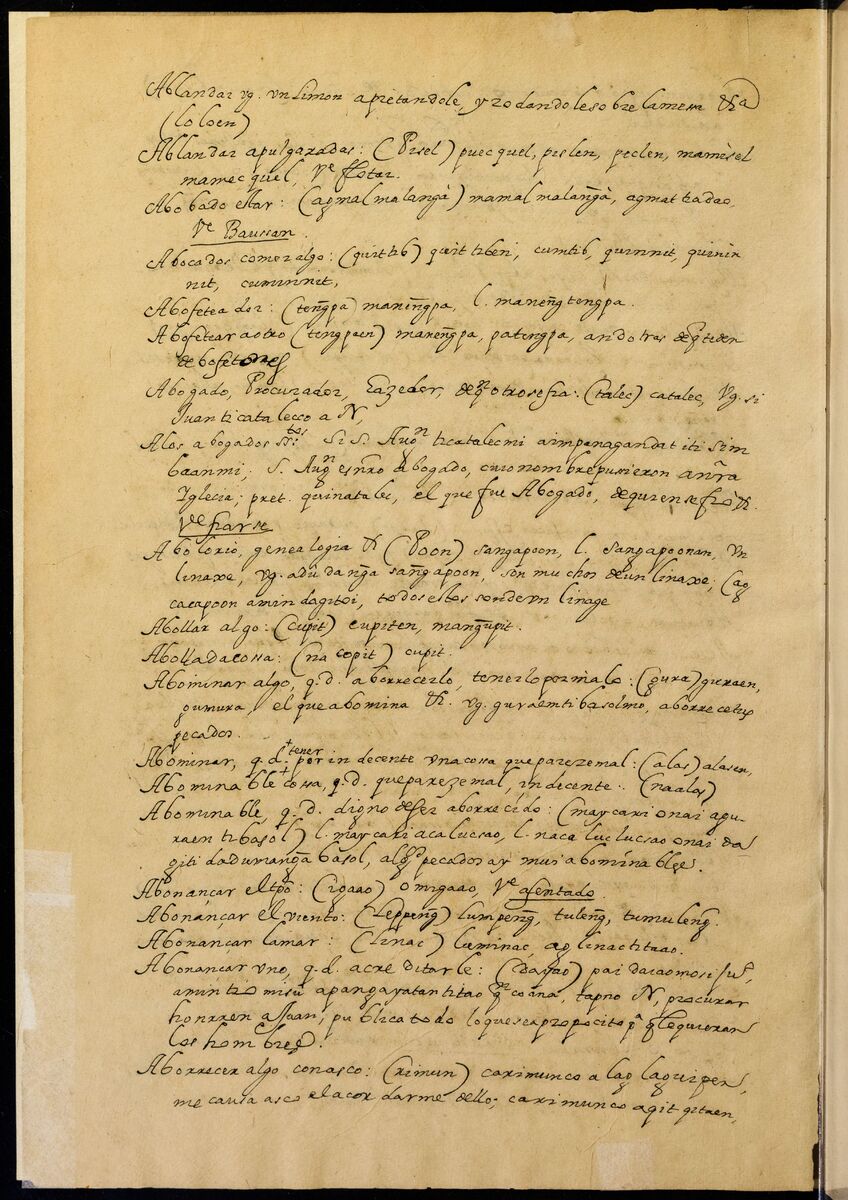 Ablandar vg. vn limon apretandole, y rodandole sobre la mesa &a
(loloen)
Ablandar apulgaradas: (Pisel) puecquel, pislen, peclen, mamisel
mamecquel, Ve flotar.
Abobado estar: (agmalmalangà) mamalmalangà, agmattadao,
Ve Baussan.
Abocados comer algo: (quittib) quittibeni, cumtib, quinnit, quinin
nit, cuminnit,
Abofeteador: (tengpa) manengpa, l. manengtengpa.
Abofetear aotro (tengpaen) manengpa, patengpa, andotras
de bofetones
Abogado, Procurador, hazedor, otro se fia: (talec) catalec, vg. si
Juan ti catalecco a N,
Alos abogados stos Si S. Augn ticatalecmi
S. Augn es nro abogado, cuio nombre pusieron anra
Iglecia; pret. quinatalec, el que fue Abogado, dequien se fiò &.
Vee fiarse
Abolorio, genealogia & (Poon) sangapoon, l. sangapoonan, vn
linaxe, vg. adu danga sangapoon, son muchos de un linaxe, (ag
cacapoon amin dagitoi, todos estos son de vn linage
Abollar algo: (cupit) cupiten, mangupit.
Abollada cossa: (na copit) cupit.
Abominar algo, q.d. aborrecerlo, tenerlo por malo: (gura) guraen,
gumura, el que abomina &. vg. guraem ti basolmo, aborrece tus
pecados.
Abominar, q.d. tener por indecente vna cossa que pareze mal: (alas) alasen,
Abominable cossa, q.d. que pareze mal, indecente. (naalas)
Abominable, q.d. digno de ser aborrecido: (maycari onai agu-
raen ti basol) l. maycari acalucsao, l. naca luc lucsao onai da
giti dadumanga basol, algs pecados ay mui abominables.
Abonançar el tpo: (igaao) omigaao, Ve asentado.
Abonançar el viento: (Leppeng) lumpeng, tuleng, tumuleng.
Abonançar la mar: (Linac) luminac, ag linac titaao.
Abonançar vno, q.d. acreditarle: (dayao) pai daiaomo si Jun,
amin tio misu apangayatan titao qn coana, tapno N, procurar
honrren a Juan, publica todo lo que sea proposito pa q le quieran
los hombres.
Aborrecer algo con asco: (rimun) carimunco a lag laguipen,
me causa asco el acordarme dello; carimunco agit gitaen,